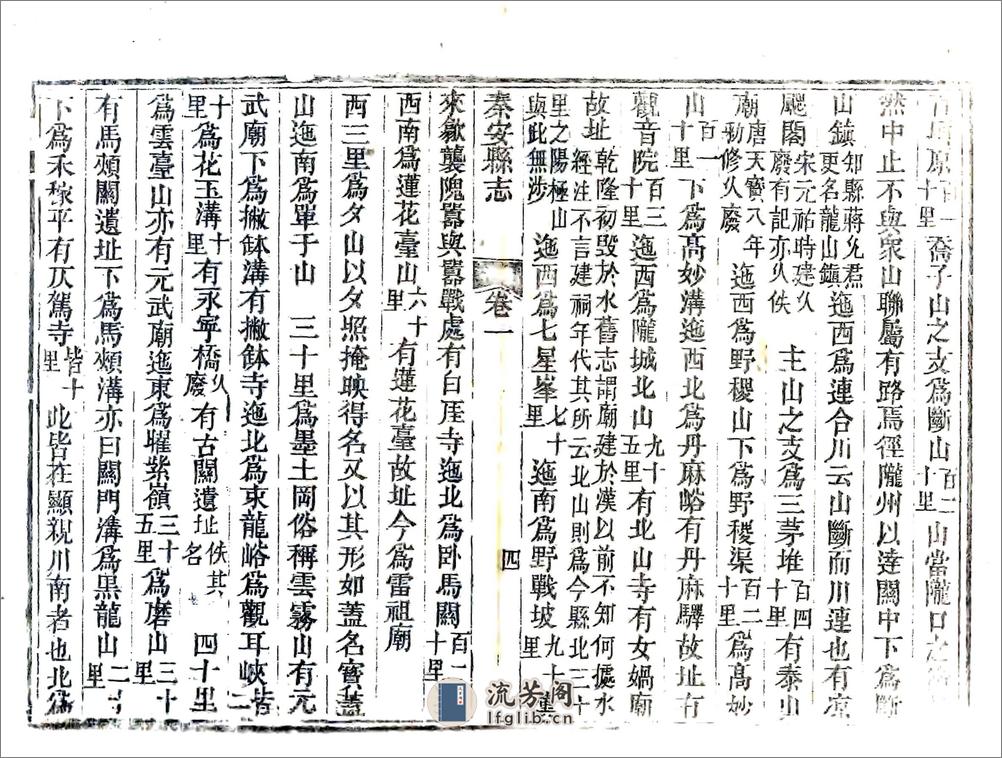 原百一十里喬子山之支爲斷山百二十里山當隴口之
然中止不與衆山聯屬有路焉徑隴州以達關中下爲斷
山鎮知縣蔣允焄更名龍山鎮迤西爲連合川云山斷而川連也有凉
飔閣宋元祐時建久廢有記亦久佚 主山之支爲三茅堆百四十里有泰山
廟唐天寶八年勑修久廢 迤西爲野稷山下爲野稷渠百二十里爲高妙
山百一十里下爲高妙溝迤西北爲丹麻峪有丹麻驛故址有
觀音院百三十里迤西爲隴城北山九十五里有北山寺有女媧廟
故址乾隆初毀於水舊志謂廟建於漢以前不知何據水經注不言建祠年代其所云北山則爲今縣北三十
里之陽極山與此無涉 迤西爲七星峯七十里迤南爲野戰坡九十里董
秦安縣志 卷一 四
來歙襲隗囂與囂戰處有白厓寺迤北爲臥馬關百二十里
西南爲蓮花臺山六十里有蓮花臺故址今爲雷祖廟
西三里爲夕山以夕照掩映得名又以其形如蓋名寶蓋
山迤南爲單于山 三十里爲墨土岡俗稱雲霧山有元
武廟下爲撇鉢溝有撇鉢寺迤北爲東龍峪爲觀耳峽皆二
十里爲花玉溝十里有永寧橋久廢有古關遺址佚其名 四十里
爲雲臺山亦有元武廟迤東爲曜紫嶺三十五里爲磨山三十里
有馬頰關遺址下爲馬頰溝亦曰關門溝爲黑龍山二十里
下爲禾稼平有仄駕寺皆十里 此皆在顯親川南者也北爲
流芳阁
lfglib.cn